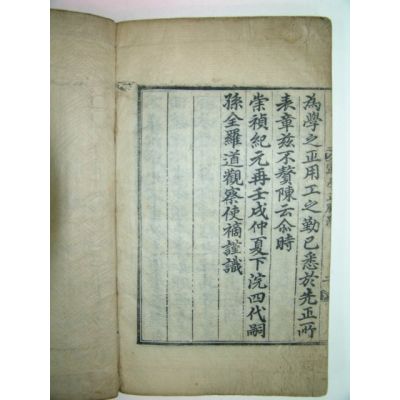 為學之正用工之勤已悉於先正所
表章玆不贅陳云爾時
崇禎紀元再壬戌仲夏下浣四代嗣
孫全羅道觀察使禰謹識